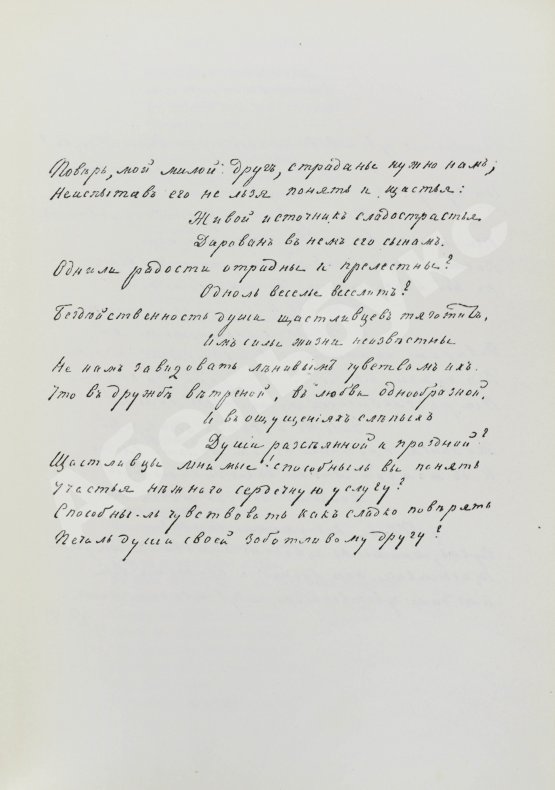 Повѣрь, мой милой! другъ, страданье нужно намъ;
Неиспытавъ его не льзя понять и щастья:
Живой источникъ сладострастья
Дарованъ въ немъ его сынамъ.
Однѣли радости отрадны и прелестны?
Одноль веселье веселитъ?
Бездѣйственность души щастливцевъ тяготитъ,
Имъ силы жизни неизвѣстны
Не намъ завидовать лѣнивымъ чувствамъ ихъ.
Что въ дружбѣ вѣтреной, въ любви однообразной,
И въ ощущеніяхъ слѣпыхъ
Души разсѣянной и праздной?
Щастливцы мнимые! способныль вы понять
Участья нѣжнаго сердечную услугу?
Способны-ль чувствовать какъ сладко повѣрять
Печаль души своей заботливому другу?